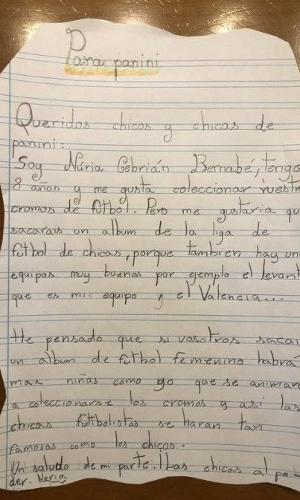 Para: panini
Queridos chicos y chicas de
panini:
Soy Núria Cebrián Bernabé, tengo
8 años y me gusta coleccionar vuestr
cromos de fútbol. Pero me gustaria qu
sacarais un album de la liga de
futbol de chicas, porque tambien hay un
equipos muy buenos por ejemplo el levant
que es mi equipo y el Valencia...
He pensado que si vosotros sacai
un álbum de fútbol femenino habra
mas niñas como yo que se animan
a coleccionarse los cromos y asi las
chicas futbolistas se haran tan
famosas como los chicos.
Un saludo de mi parte. ¡las chicas al po
der. Núria